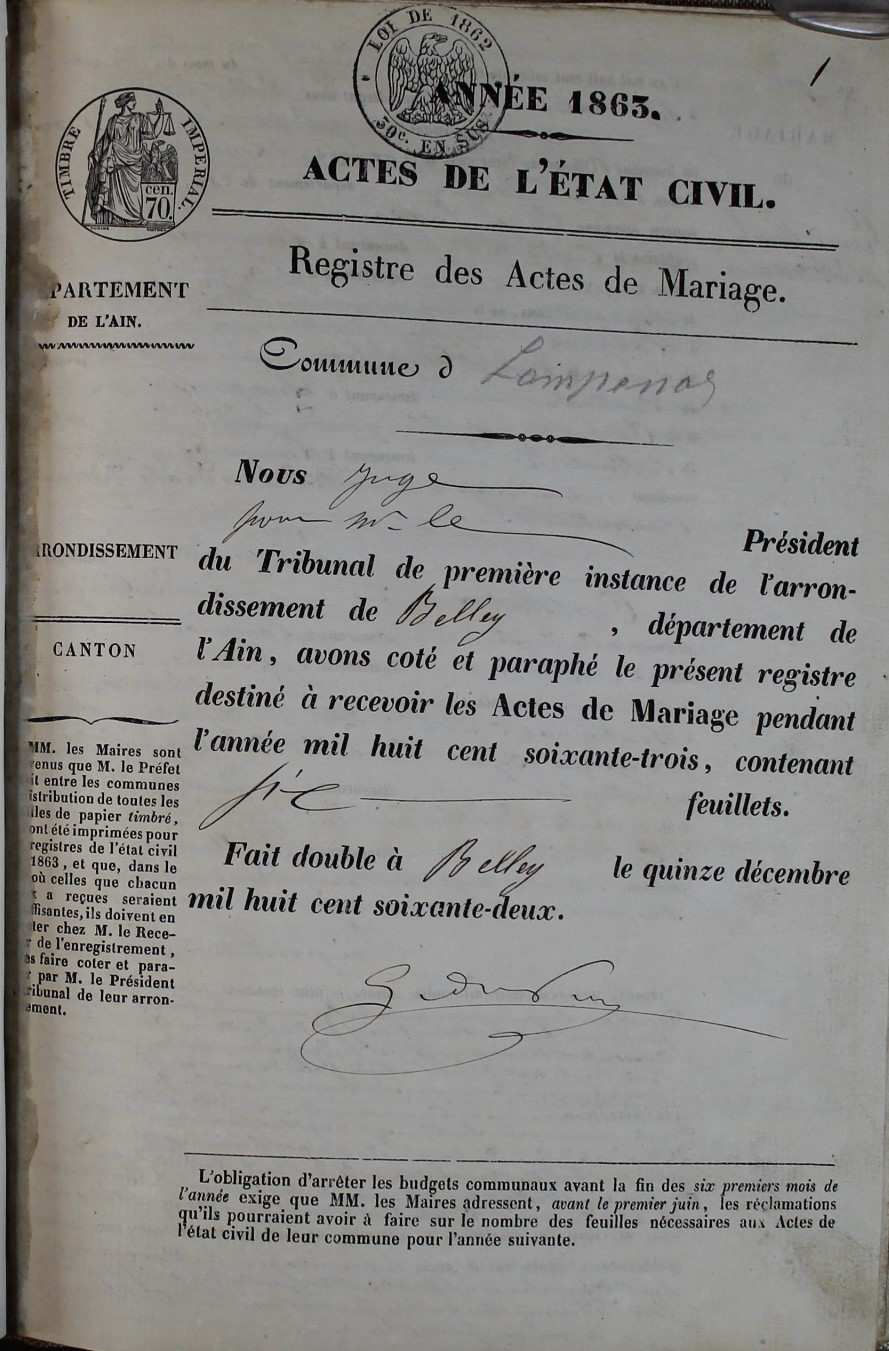 LOI DE 1862
30c. EN SUS
1
ANNÉE 1863.
TIMBRE IMPERIAL.
cen.
70.
ACTES DE L'ÉTAT CIVIL.
Registre des Actes de Mariage.
PARTEMENT
DE L'AIN.
Commune d
Nous Juge
pour Mr le Président
RONDISSEMENT
du Tribunal de première instance de l'arron-
dissement de Belley, département de
CANTON
l'Ain, avons coté et paraphé le présent registre
destiné à recevoir les Actes de Mariage pendant
l'année mil huit cent soixante-trois, contenant
six feuillets.
Fait double à Belley le quinze décembre
mil huit cent soixante-deux.
MM. les Maires sont
venus que M. le Préfet
it entre les communes
istribution de toutes les
lles de papier timbré,
ont été imprimées pour
registres de l'état civil
1863, et que, dans le
où celles que chacun
a reçues seraient
ffisantes, ils doivent en
ter chez M. le Rece-
r de l'enregistrement,
es faire coter et para-
r par M. le Président
ribunal de leur arron-
ement.
L'obligation d'arrêter les budgets communaux avant la fin des six premiers mois de
l'année exige que MM. les Maires adressent, avant le premier juin, les réclamations
qu'ils pourraient avoir à faire sur le nombre des feuilles nécessaires aux Actes de
l'état civil de leur commune pour l'année suivante.